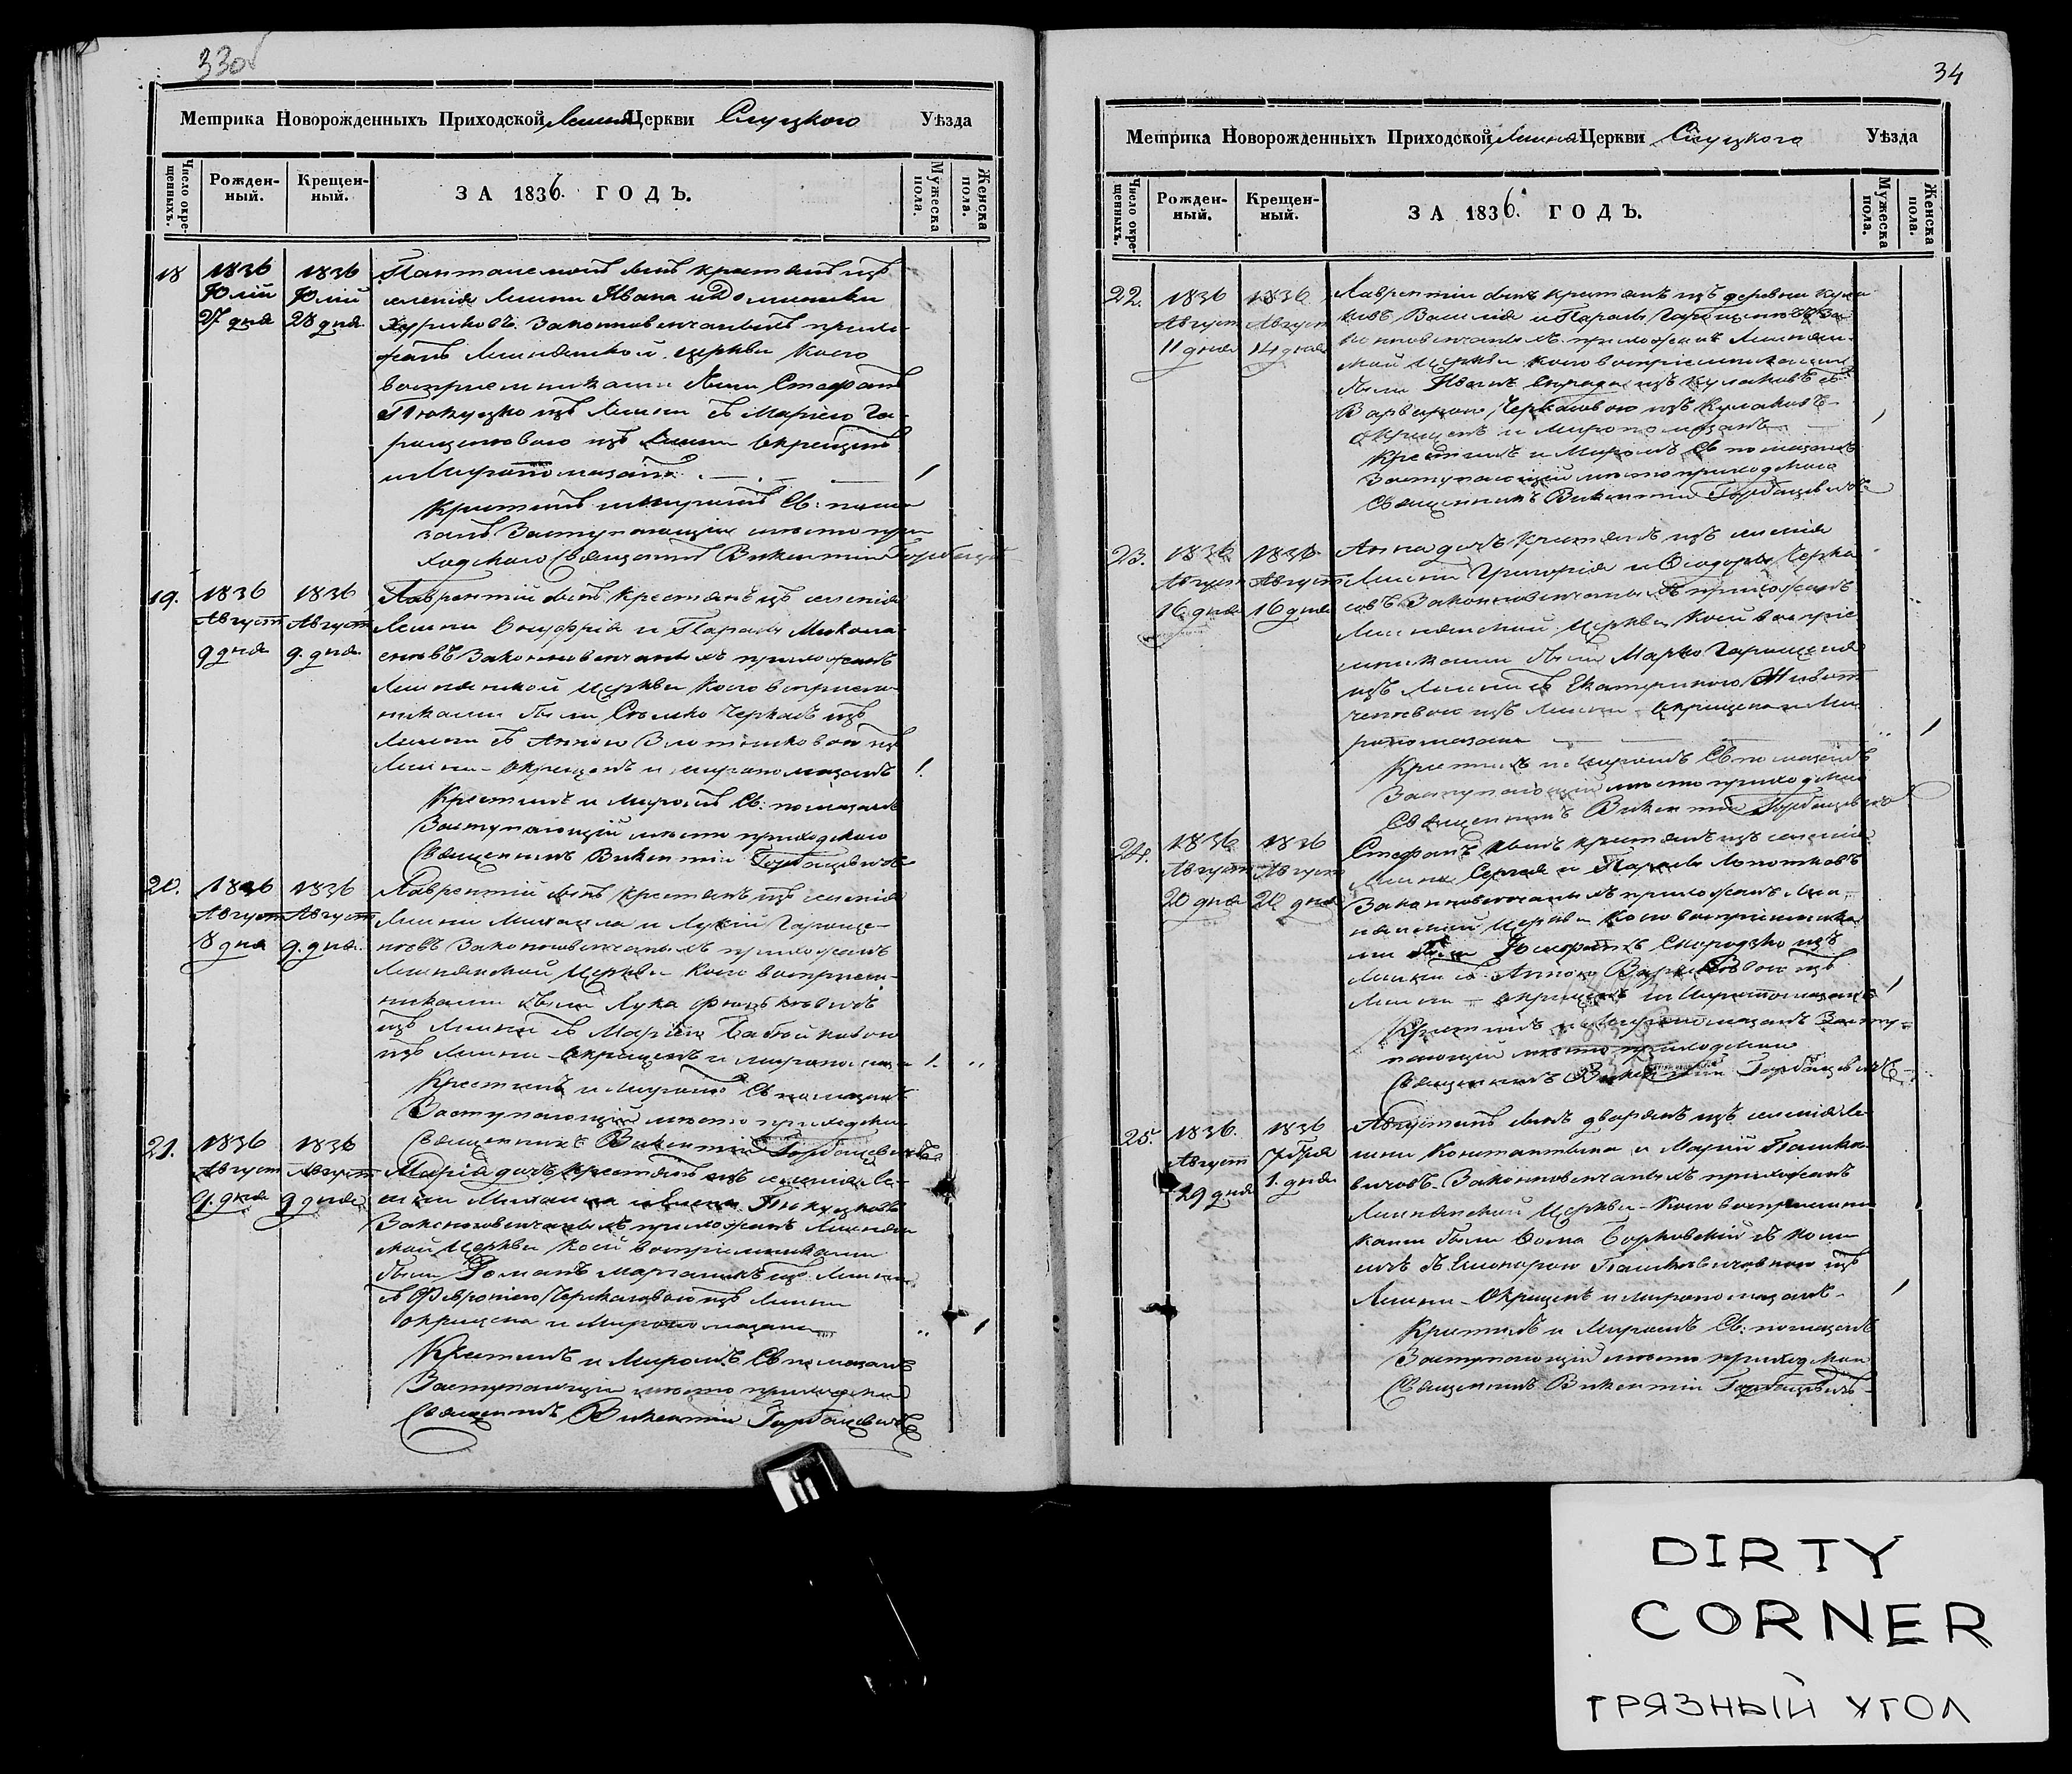 33об
Метрика Новорожденныхъ Приходской Церкви Слуцкого Уѣзда
Число окрещенныхъ.
Рожденный.
Крещенный.
ЗА 1836. ГОДЪ.
Мужеска пола.
Женска пола.
18
1836 Юлій 27 дня
1836 Юлій 28 дня
Пантелеимонъ сынъ крестьянъ изъ
селенія Лешни Ивана и Доминики
законновѣнчанныхъ прихо-
жанъ Лешнянской церкви коего
воспріемниками были Стефанъ
изъ Лешни съ Маріею Га-
ращеновою изъ Лешни окрещенъ
и Миропомазанъ
Крестилъ и миромъ Св: пома-
залъ Заступающій мѣсто при-
ходскаго Священникъ Викентій Горбацевичъ
19.
1836 Августъ 9 дня
1836 Августъ 9. дня
Лаврентій сынъ крестьянъ изъ селенія
Лешни Онуфрія и Парасы
законновѣнчанныхъ прихожанъ
Лешнянской Церкви коего воспріем-
никами были Черкасъ изъ
Лешни съ Анною изъ
Лешни - окрещенъ и миропомазанъ
Крестилъ и миромъ Св: помазалъ
Заступающій мѣсто приходскаго
Священникъ Викентій Горбацевичъ
20.
1836 Августъ 8 дня
1836 Августъ 9. дня
Лаврентій сынъ крестьянъ изъ селенія
Лешни Михаила и Лукіи Гараще-
новъ законновѣнчанныхъ прихожанъ
Лешнянской Церкви коего воспріем-
никами были Лука
изъ Лешни съ Маріею
изъ Лешни - окрещенъ и миропомаза
Крестилъ и миромъ Св помазалъ
Заступающій мѣсто приходскаго
Священникъ Викентій Горбацевичъ
21.
1836 Августъ 9. дня
1836 Августъ 9 дня
Марія дочь крестьянъ изъ селенія Ле-
шни Михаила и Елены
Законновѣнчанныхъ прихожанъ Лешнян
ской Церкви коей воспріемниками
были Романъ изъ Лешни
съ Февроніею Черкасовою изъ Лешни
окрещена и Миропомазана
Крестилъ и Миромъ Св помазалъ
Заступающій мѣсто приходскаго
Священникъ Викентій Горбацевичъ
34
Метрика Новорожденныхъ Приходской Церкви Слуцкого Уѣзда
Число окрещенныхъ.
Рожденный.
Крещенный.
ЗА 1836. ГОДЪ.
Мужеска пола.
Женска пола.
22.
1836 Августъ 11 дня
1836 Августъ 14 дня
Лаврентій сынъ крестьянъ изъ деревни Кула-
ковъ Василія и Парасы Гаращеновъ За
конновѣнчанныхъ прихожанъ Лешнян-
ской Церкви коего воспріемниками
были Иванъ изъ Кулаковъ съ
Варварою Черкасовою изъ Кулаковъ
окрещенъ и Миропомазанъ
Крестилъ и Миромъ Св помазалъ
Заступающій мѣсто приходскаго
Священникъ Викентій Горбацевичъ
23.
1836 Августъ 16 дня
1836 Августъ 16 дня
Анна дочь крестьянъ изъ селенія
Лешни Григорія и Ѳеодоры Черка
совъ Законновѣнчанныхъ прихожанъ
Лешнянской Церкви коей воспріе
мниками были Марко Гаращеня
изъ Лешни съ Екатериною
изъ Лешни - окрещена и Ми
ропомазана
Крестилъ и миромъ Св помазалъ
Заступающій мѣсто приходскаго
Священникъ Викентій Горбацевичъ
24.
1836 Августъ 20 дня
1836 Августъ 20 дня
Стефанъ сынъ крестьянъ изъ селенія
Лешни Сергея и Парасы Лопатковъ
Законновѣнчанныхъ прихожанъ Леш-
нянской Церкви коего воспріемника
ми были изъ
Лешни съ Анною изъ
Лешни - окрещенъ и Миропомазанъ
Крестилъ и Миромъ помазалъ Засту-
пающій мѣсто приходскаго
Священникъ Викентій Горбацевичъ
25.
1836. Августъ 29 дня
1836 7бря 1. дня
Августинъ сынъ дворянъ изъ селенія Ле-
шни Константина и Маріи Пашке-
вичовъ - Законновѣнчанныхъ прихожанъ
Лешнянской Церкви - коего воспріемни
ками были Ѳома Борковскій
съ Элеонорою Пашкевичовною изъ
Лешни - Окрещенъ и миропомазанъ -
Крестилъ и Миромъ Св: помазалъ
Заступающій мѣсто приходскаго
Священникъ Викентій Горбацевичъ
DIRTY
CORNER
ГРЯЗНЫЙ УГОЛ